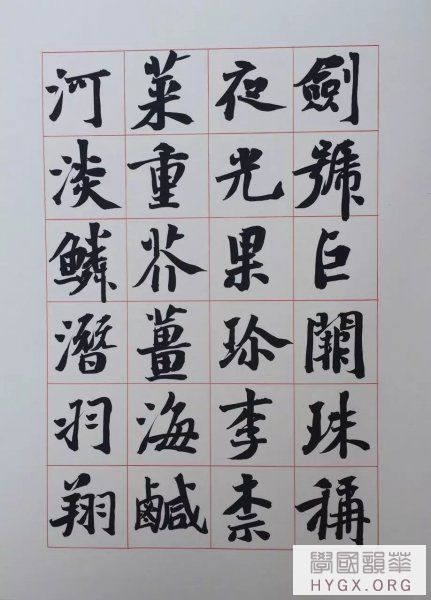 劍號巨闕珠稱
夜光果珍李柰
菜重芥薑海鹹
河淡鱗潛羽翔
華韻國學
HYGX.ORG